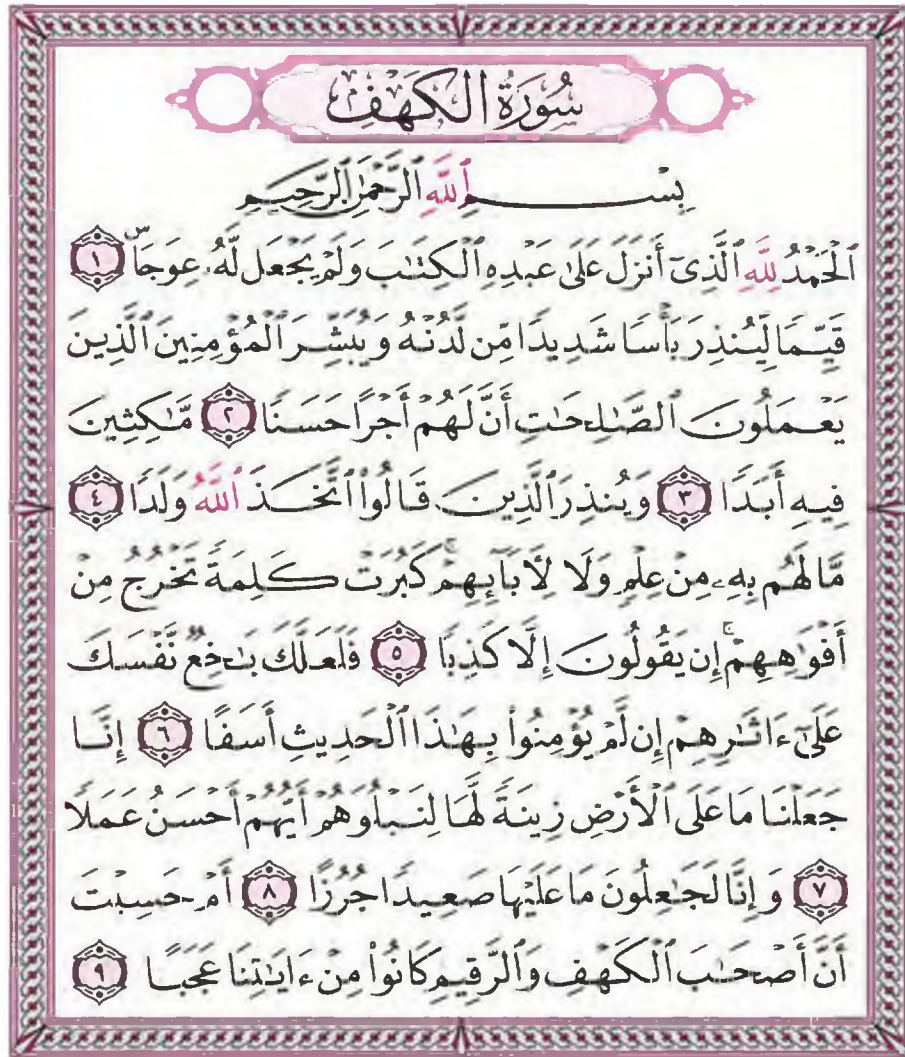 سُورَةُ الكَهْفِ
بِسْمِ ٱللَّهِ ٱلرَّحْمَٰنِ ٱلرَّحِيمِ
ٱلْحَمْدُ لِلَّهِ ٱلَّذِىٓ أَنزَلَ عَلَىٰ عَبْدِهِ ٱلْكِتَٰبَ وَلَمْ يَجْعَل لَّهُۥ عِوَجَاۜ ١
قَيِّمًا لِّيُنذِرَ بَأْسًا شَدِيدًا مِّن لَّدُنْهُ وَيُبَشِّرَ ٱلْمُؤْمِنِينَ ٱلَّذِينَ
يَعْمَلُونَ ٱلصَّٰلِحَٰتِ أَنَّ لَهُمْ أَجْرًا حَسَنًا ٢ مَّٰكِثِينَ
فِيهِ أَبَدًا ٣ وَيُنذِرَ ٱلَّذِينَ قَالُوا۟ ٱتَّخَذَ ٱللَّهُ وَلَدًا ٤
مَّا لَهُم بِهِۦ مِنْ عِلْمٍ وَلَا لِـَٔابَآئِهِمْ ۚ كَبُرَتْ كَلِمَةً تَخْرُجُ مِنْ
أَفْوَٰهِهِمْ ۚ إِن يَقُولُونَ إِلَّا كَذِبًا ٥ فَلَعَلَّكَ بَٰخِعٌ نَّفْسَكَ
عَلَىٰٓ ءَاثَٰرِهِمْ إِن لَّمْ يُؤْمِنُوا۟ بِهَٰذَا ٱلْحَدِيثِ أَسَفًا ٦ إِنَّا
جَعَلْنَا مَا عَلَى ٱلْأَرْضِ زِينَةً لَّهَا لِنَبْلُوَهُمْ أَيُّهُمْ أَحْسَنُ عَمَلًا
٧ وَإِنَّا لَجَٰعِلُونَ مَا عَلَيْهَا صَعِيدًا جُرُزًا ٨ أَمْ حَسِبْتَ
أَنَّ أَصْحَٰبَ ٱلْكَهْفِ وَٱلرَّقِيمِ كَانُوا۟ مِنْ ءَايَٰتِنَا عَجَبًا ٩